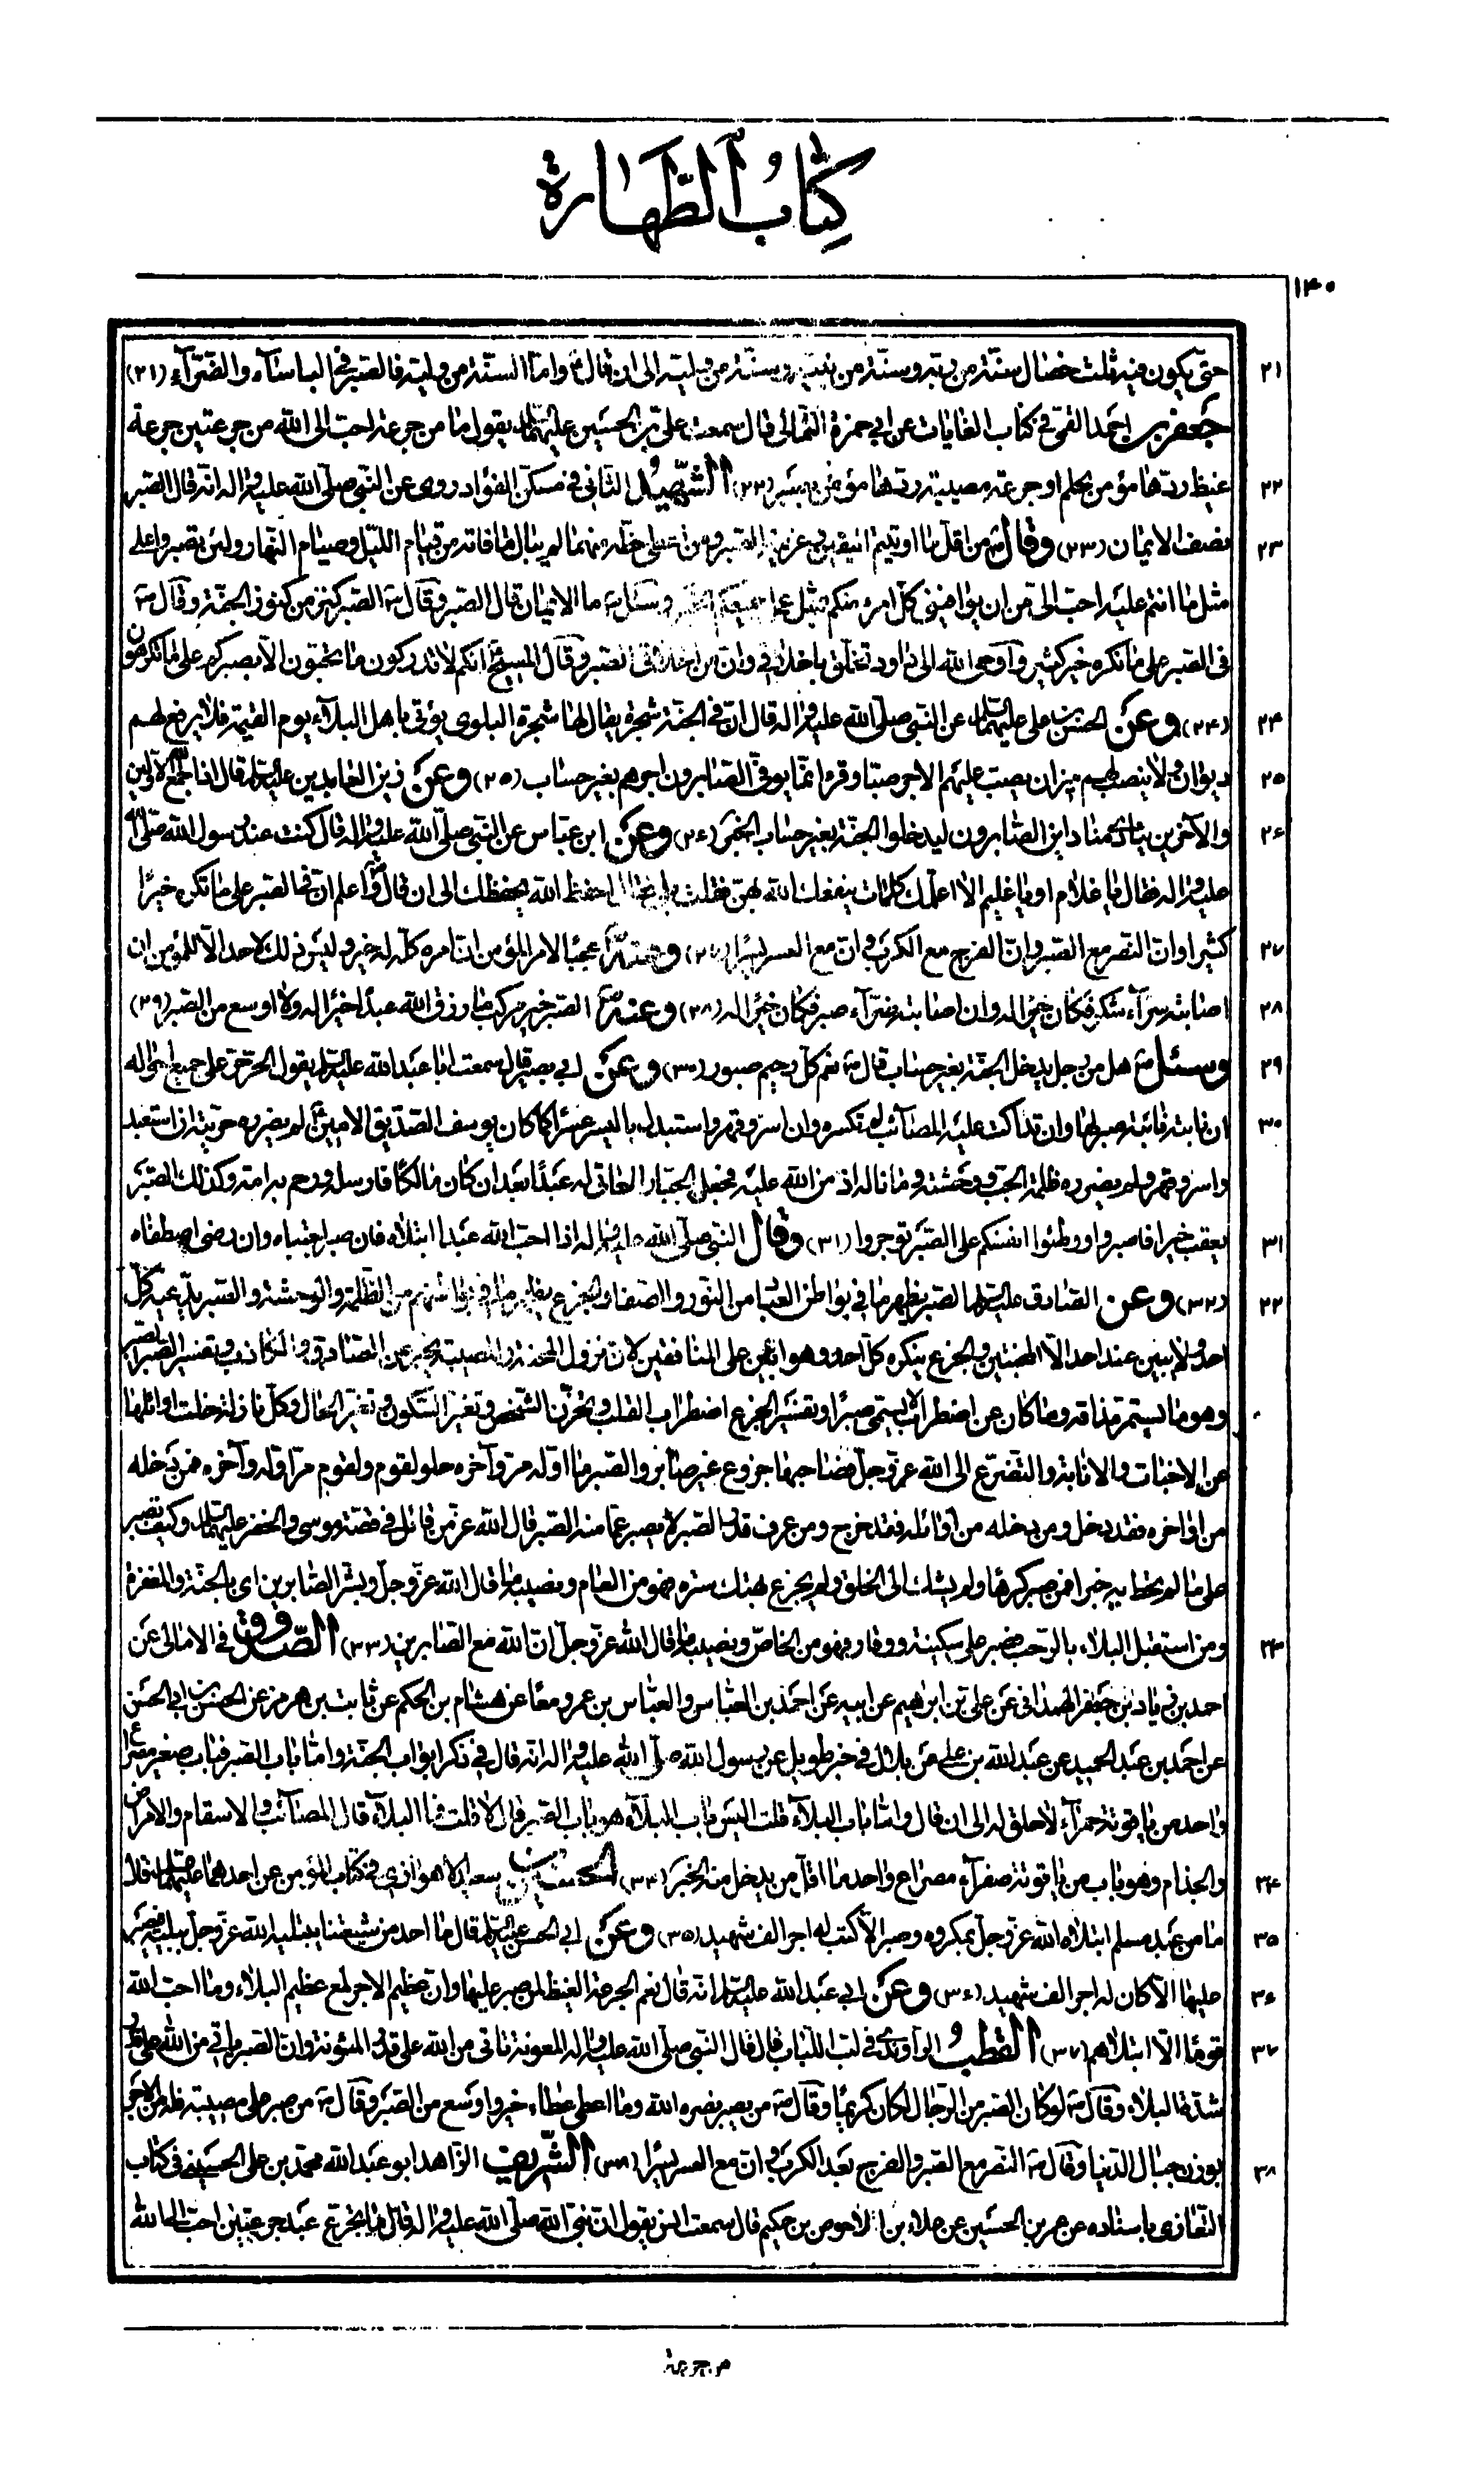 كتاب الطهارة
١٤٠
حتى يكون فيه ثلث خصال سنة من ربه وسنة من نبيه وسنة من وليه الى ان قال ع واما السنة من وليه فالصبر في الباساء والضراء (٢١)
٢١
جعفر بن احمد القمى في كتاب الغايات عن ابي حمزة الثمالى قال سمعت على بن الحسين عليهما يقول ما من جرعة احب الى الله من جرعتين جرعة
غيظ ردها مؤمن بحلم او جرعة مصيبة ردها مؤمن بصبر (٢٢) الشهيد الثاني في مسكن الفؤاد روى عن النبي صلى الله عليه واله انه قال الصبر
٢٢
نصف الايمان (٢٣) وقال ص من اقل ما اوتيتم اليقين وعزيمة الصبر ومن اعطى حظه منهما لم يبال ما فاته من قيام الليل وصيام النهار ولئن تصبروا على
٢٣
مثل ما انتم عليه احب الى من ان يوافينى كل امرء منكم بمثل عمل جميعكم وسئل ص ما الايمان قال الصبر وقال ص الصبر كنز من كنوز الجنة وقال ص
في الصبر على ما تكره خير كثير واوحى الله الى داود تخلق باخلاقي وان من اخلاقى الصبر وقال المسيح ع انكم لا تدركون ما تحبون الا بصبركم على ما تكرهون
(٢٤) وعن الحسن بن على عليهما عن النبي صلى الله عليه واله قال ان في الجنة شجرة يقال لها شجرة البلوى يؤتى باهل البلاء يوم القيمة فلا يرفع لهم
٢٤
ديوان ولا ينصب لهم ميزان يصب عليهم الاجر صبا وقرء انما يوفى الصابرون اجرهم بغير حساب (٢٥) وعن زين العابدين عليه قال اذا جمع الله الاولين
٢٥
والآخرين ينادى مناد اين الصابرون ليدخلوا الجنة بغير حساب الخبر (٢٦) وعن ابن عباس عن النبى صلى الله عليه واله قال كنت عند رسول الله صلى الله
٢٦
عليه واله فقال يا غلام او يا غليم الا اعلمك كلمات ينفعك الله بهن فقلت بلى فقال احفظ الله يحفظك الى ان قال ص واعلم ان في الصبر على ما تكره خيرًا
كثيرا وان النصر مع الصبر وان الفرج مع الكرب وان مع العسر يسرا (٢٧) وعنه ص عجبا لامر المؤمن ان امره كله له خير وليس ذلك لاحد الا للمؤمن ان
٢٧
اصابته سراء شكر فكان خيرا له وان اصابته ضراء صبر فكان خيرا له (٢٨) وعنه ص الصبر خير مركب ما رزق الله عبدًا خيرًا له ولا اوسع من الصبر (٢٩)
٢٨
وسئل ص هل من رجل يدخل الجنة بغير حساب قال ص نعم كل رحيم صبور (٣٠) وعن ابي بصير قال سمعت ابا عبد الله عليه يقول الحر حر على جميع احواله
٢٩
ان نابته نائبة صبر لها وان تداكت عليه المصائب لم تكسره وان اسر وقهر واستبدل باليسر عسرا كما كان يوسف الصديق الامين ع لم يضرره حريته ان استعبد
٣٠
واسر وقهر ولم يضرره ظلمة الجب ووحشته وما ناله ان من الله عليه فجعل الجبار العاتى له عبدًا بعد ان كان مالكا فارسله ورحم به امة وكذلك الصبر
يعقب خيرا فاصبروا ووطئوا انفسكم على الصبر توجروا (٣١) وقال النبي صلى الله عليه واله اذا احب الله عبدا ابتلاه فان صبر اجتباه وان رضى اصطفاه
٣١
(٣٢) وعن الصادق عليه الصبر يظهر ما في بواطن العباد من النور والصفاء والجزع يظهر ما في بواطنهم من الظلمة والوحشة والصبر يدعيه كل
٢٢
احد ولا يبين عند احد الا المخبتين والجزع ينكره كل احد وهو ابين على المنافقين لان نزول المحنة والمصيبة يخبر عن الصادق والكاذب وتفسير الصبر
وهو ما يستمر مذاقه وما كان عن اضطراب لا يسمى صبرًا وتفسير الجزع اضطراب القلب وتحزن الشخص وتغير السكون وتغير الحال وكل نازلة خلت اوائلها
من الاخبات والانابة والتضرع الى الله عز وجل فصاحبها جزوع غير صابر والصبر ما اوله مر وآخره حلو لقوم ولقوم مر اوله وآخره فمن دخله
من اواخره فقد دخل ومن دخله من اوائله فقد خرج ومن عرف قدر الصبر لا يصبر عما منه الصبر قال الله عز من قائل في قصة موسى والخضر عليهما وكيف تصبر
على ما لم تحط به خبرا فمن صبر كرها ولم يشك الى الخلق ولم يجزع بهتك ستره فهو من العام ونصيبه ما قال الله عز وجل وبشر الصابرين اى بالجنة والمغفرة
ومن استقبل البلاء بالرحب وصبر على سكينة ووقار فهو من الخاص ونصيبه ما قال الله عز وجل ان الله مع الصابرين (٣٣) الصدوق في الامالى عن
٣٣
احمد بن زياد بن جعفر الهمداني عن على بن ابراهيم عن ابيه عن احمد بن العباس والعباس بن عمرو معًا عن هشام بن الحكم عن ثابت بن هرمز عن الحسن بن ابي الحسن
عن احمد بن عبد الحميد عن عبد الله بن على عن بلال في خبر طويل عن رسول الله صلى الله عليه واله انه قال في ذكر ابواب الجنة واما باب الصبر فباب صغير مصراع
واحد من ياقوتة حمراء لا حلق له الى ان قال واما باب البلاء قلت اليس باب البلاء هو باب الصبر قال لا قلت فما البلاء قال المصائب والاسقام والامراض
والجذام وهو باب من ياقوتة صفراء مصراع واحد ما اقل من يدخل منه الخبر (٣٤) الحسين بن سعيد الاهوازى في كتاب المؤمن عن احدهما عليهما قال
٣٤
ما من عبد مسلم ابتلاه الله عز وجل بمكروه وصبر الا كتب له اجر الف شهيد (٣٥) وعن ابي الحسن عليه قال ما احد من شيعتنا يبتليه الله عز وجل ببلية فيصبر
٣٥
عليها الا كان له اجر الف شهيد (٣٦) وعن ابي عبد الله عليه انه قال نعم الجرعة الغيظ لمن صبر عليها وان عظيم الاجر لمع عظيم البلاء وما احب الله
٣٦
قومًا الا ابتلاهم (٣٧) القطب الراوندى في لب اللباب قال قال النبي صلى الله عليه واله المعونة تاتى من الله على قدر المئونة وان الصبر ياتي من الله على قدر
٣٧
شدة البلاء وقال ص لو كان الصبر من الرجال لكان كريمًا وقال ص من يصبر يصبره الله وما اعطى عطاء خير واوسع من الصبر وقال ص من صبر على مصيبته فله من الاجر
بوزن جبال الدنيا وقال ص النصر مع الصبر والفرج بعد الكرب وان مع العسر يسرا (٣٨) الشريف الزاهد ابو عبد الله محمد بن على الحسينى في كتاب
٣٨
التعازى باسناده عن عمر بن الحسين عن علاء بن الاحوص بن حكيم قال سمعت انس يقول ان نبى الله صلى الله عليه واله قال ما تجرع عبد جرعتين احب الى الله
من جرعة